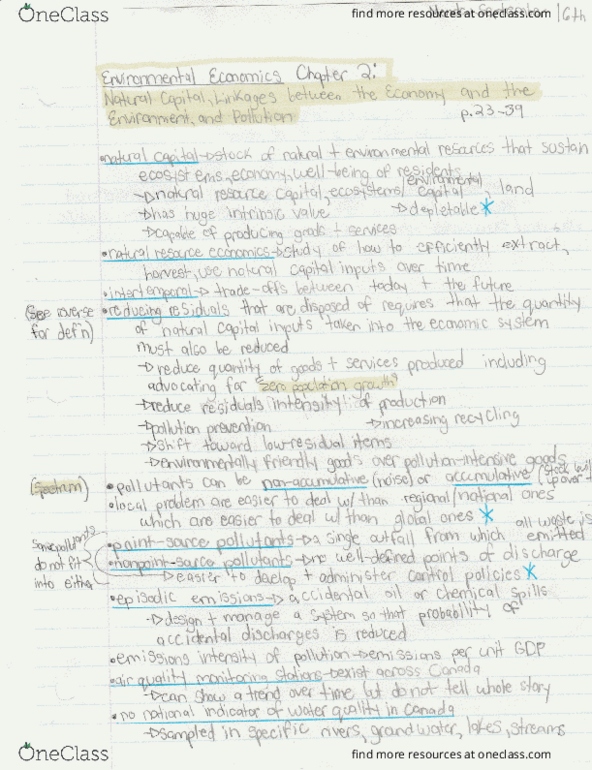 OneClass
find more resources at oneclass.com
16th
Environmental Economics Chapter 2:
Natural Capital, Linkages between the Economy and the
Environment, and Pollution
p.23-39
•natural capital→stock of natural + environmental resources that sustain
ecosystems, economy, well-being of residents
→natural resource capital, ecosystems/environmental capital, land
→has huge intrinsic value →depletable*
→capable of producing goods + services
•natural resource economics→study of how to efficiently extract,
harvest, use natural capital inputs over time
•intertemporal→trade-offs between today + the future
(see reverse for def'n)
•reducing residuals that are disposed of requires that the quantity
of natural capital inputs taken into the economic system
must also be reduced
→reduce quantity of goods + services produced including
advocating for "zero population growth"
→reduce residuals intensity of production
→pollution prevention →increasing recycling
→shift toward low-residual items
→environmentally friendly goods over pollution-intensive goods
(spectrum)
•pollutants can be non-accumulative (noise) or accumulative (stock
•local problem are easier to deal w/ than regional/national ones
which are easier to deal w/ than global ones *
some pollutants do not fit into either
•point-source pollutants→a single outfall from which all waste is emitted
•nonpoint-source pollutants→no well-defined points of discharge
→easier to develop + administer control policies*
•episodic emissions→accidental oil or chemical spills
→design + manage a system so that probability of
accidental discharges is reduced
•emissions intensity of pollution→emissions per unit GDP
•air quality monitoring stations→exist across Canada
→can show a trend over time but do not tell whole story
•no national indicator of water quality in Canada
→sampled in specific rivers, groundwater, lakes, streams
OneClass
find more resources at oneclass.com